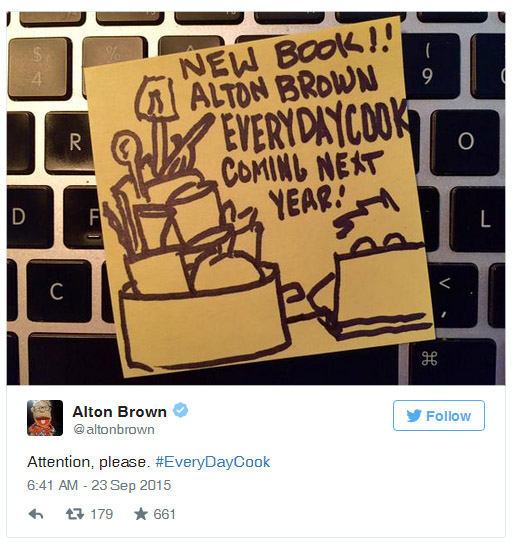 $
4
%
(
9
R
O
D
F
L
C
<
,
⌘
NEW BOOK!!
ALTON BROWN
EVERYDAYCOOK
COMING NEXT
YEAR!
Alton Brown
@altonbrown
Follow
Attention, please. #EveryDayCook
6:41 AM - 23 Sep 2015
179
661